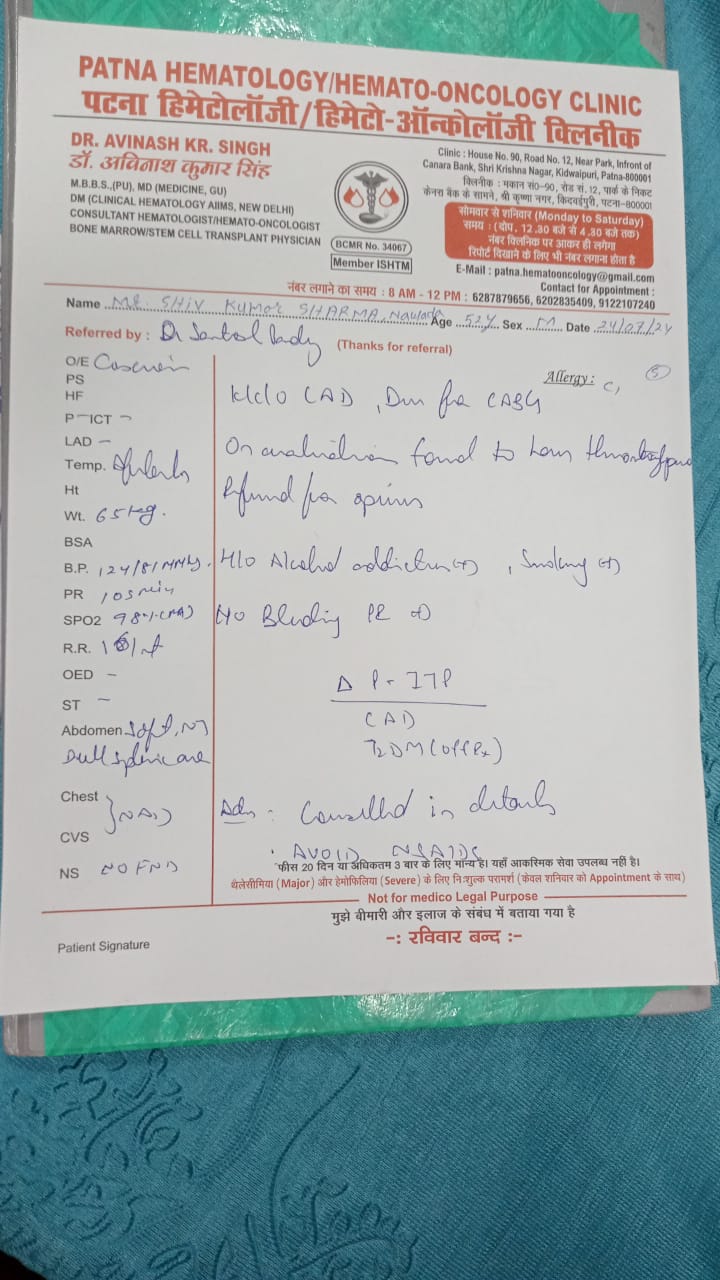 PATNA HEMATOLOGY/HEMATO-ONCOLOGY CLINIC
पटना हिमेटोलॉजी/हिमेटो-ऑन्कोलॉजी क्लिनीक
DR. AVINASH KR. SINGH
डॉ. अविनाश कुमार सिंह
M.B.B.S.,(PU), MD (MEDICINE, GU)
DM (CLINICAL HEMATOLOGY AIIMS, NEW DELHI)
CONSULTANT HEMATOLOGIST/HEMATO-ONCOLOGIST
BONE MARROW/STEM CELL TRANSPLANT PHYSICIAN
BCMR No. 34067
Member ISHTM
Clinic : House No. 90, Road No. 12, Near Park, Infront of
Canara Bank, Shri Krishna Nagar, Kidwaipuri, Patna-800001
क्लिनीक : मकान सं०-90, रोड सं. 12, पार्क के निकट
केनरा बैंक के सामने, श्री कृष्णा नगर, किदवईपुरी, पटना-800001
सोमवार से शनिवार (Monday to Saturday)
समय : (दोप. 12.30 बजे से 4.30 बजे तक)
नंबर क्लिनिक पर आकर ही लगेगा
रिपोर्ट दिखाने के लिए भी नंबर लगाना होता है
E-Mail : patna.hematooncology@gmail.com
Contact for Appointment :
नंबर लगाने का समय : 8 AM - 12 PM : 6287879656, 6202835409, 9122107240
Name Mr. SHIV KUMAR SHARMA, Age 52Y Sex M Date 24/07/24
Referred by : Dr
(Thanks for referral)
O/E
Allergy :
PS
HF
K/c/o CAD, for CABG
P-ICT -
LAD -
On evaluation found to have
Temp. Afebrile
for
Ht
Wt. 65 kg.
BSA
B.P. 124/81 MMHg. H/O Alcohol addiction (+), Smoking (+)
PR 103 min
SPO2 98% (RA) Bleeding PR
R.R.
OED -
Δ P- ITP
ST -
CAD
Abdomen Soft, NT
T2DM (Off Rx)
Dull
Chest NAD
Adv : Counselled in details
CVS
. AVOID NSAIDS
NS NO FND
फीस 20 दिन या अधिकतम 3 बार के लिए मान्य है। यहाँ आकस्मिक सेवा उपलब्ध नहीं है।
थैलेसीमिया (Major) और हेमोफिलिया (Severe) के लिए निःशुल्क परामर्श (केवल शनिवार को Appointment के साथ)
Not for medico Legal Purpose
मुझे बीमारी और इलाज के संबंध में बताया गया है
Patient Signature
-: रविवार बन्द :-